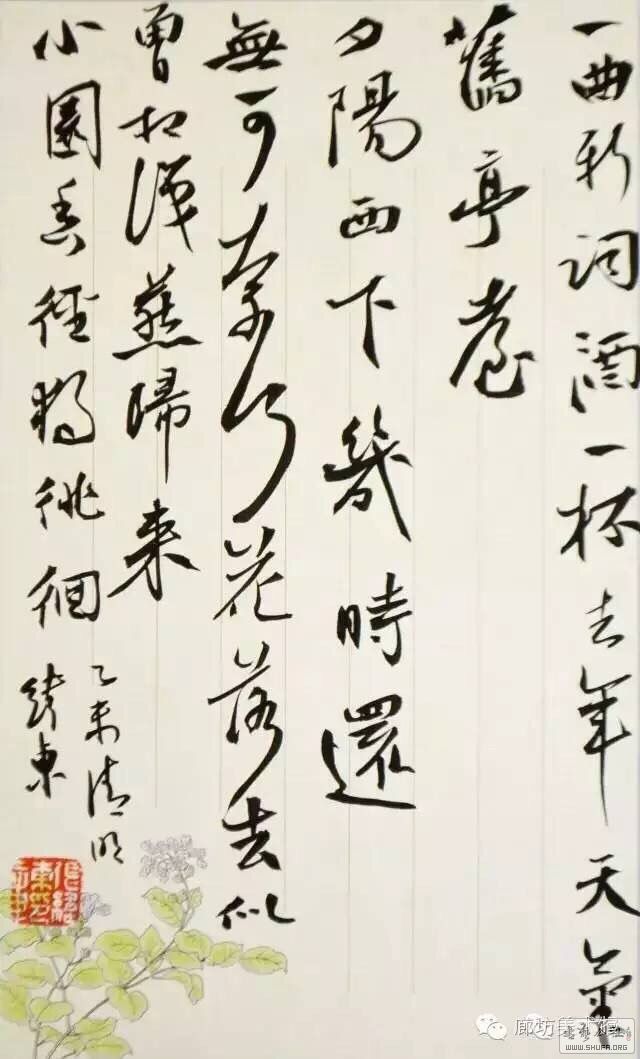 一曲新詞酒一杯去年天氣
舊亭臺
夕陽西下幾時還
無可奈何花落去似
曾相識燕歸来
小園香徑獨徘徊
乙未清明
緒東
廊坊美术馆
WWW.SHUFA.ORG